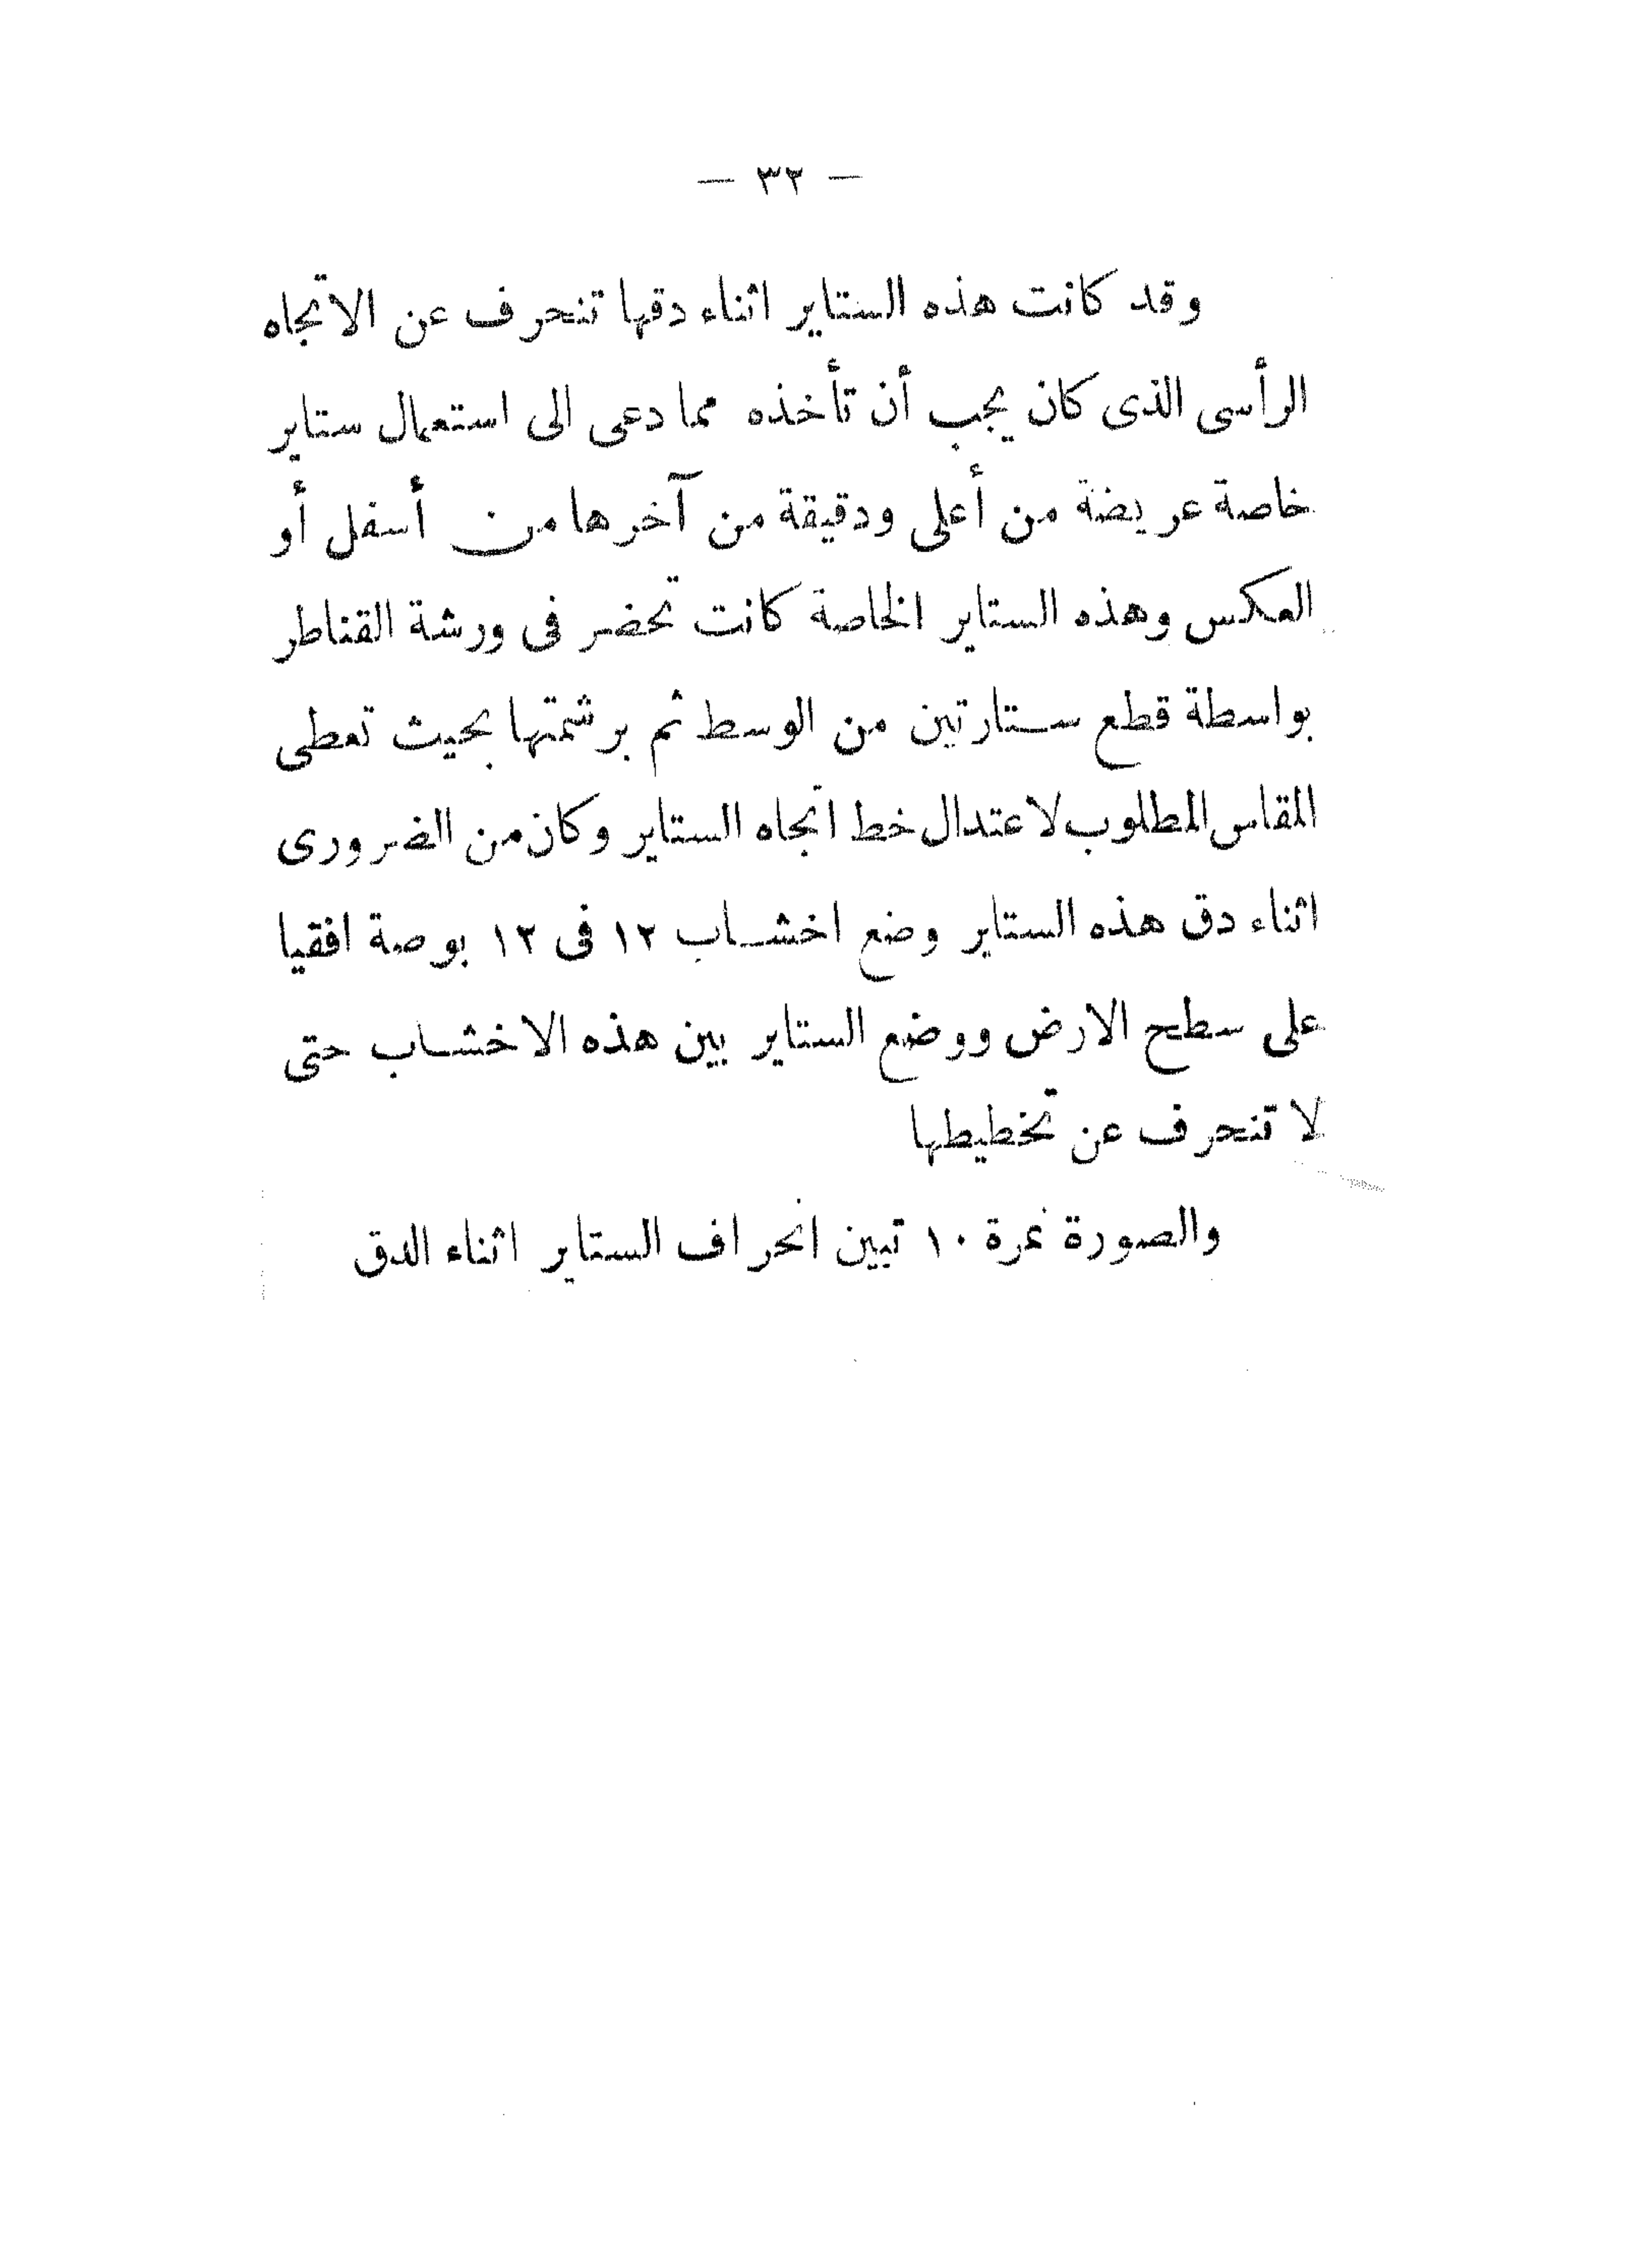 — ٣٢ —
وقد كانت هذه الستاير اثناء دقها تنحرف عن الاتجاه
الرأسى الذى كان يجب أن تأخذه مما دعى الى استعمال ستاير
خاصة عريضة من أعلى ودقيقة من آخرها من أسفل أو
العكس وهذه الستاير الخاصة كانت تحضر فى ورشة القناطر
بواسطة قطع ستارتين من الوسط ثم برشمتها بحيث تعطى
المقاس المطلوب لاعتدال خط اتجاه الستاير وكان من الضرورى
اثناء دق هذه الستاير وضع اخشاب ١٢ فى ١٢ بوصة افقيا
على سطح الارض ووضع الستاير بين هذه الاخشاب حتى
لا تنحرف عن تخطيطها
والصورة نمرة ١٠ تبين انحراف الستاير اثناء الدق